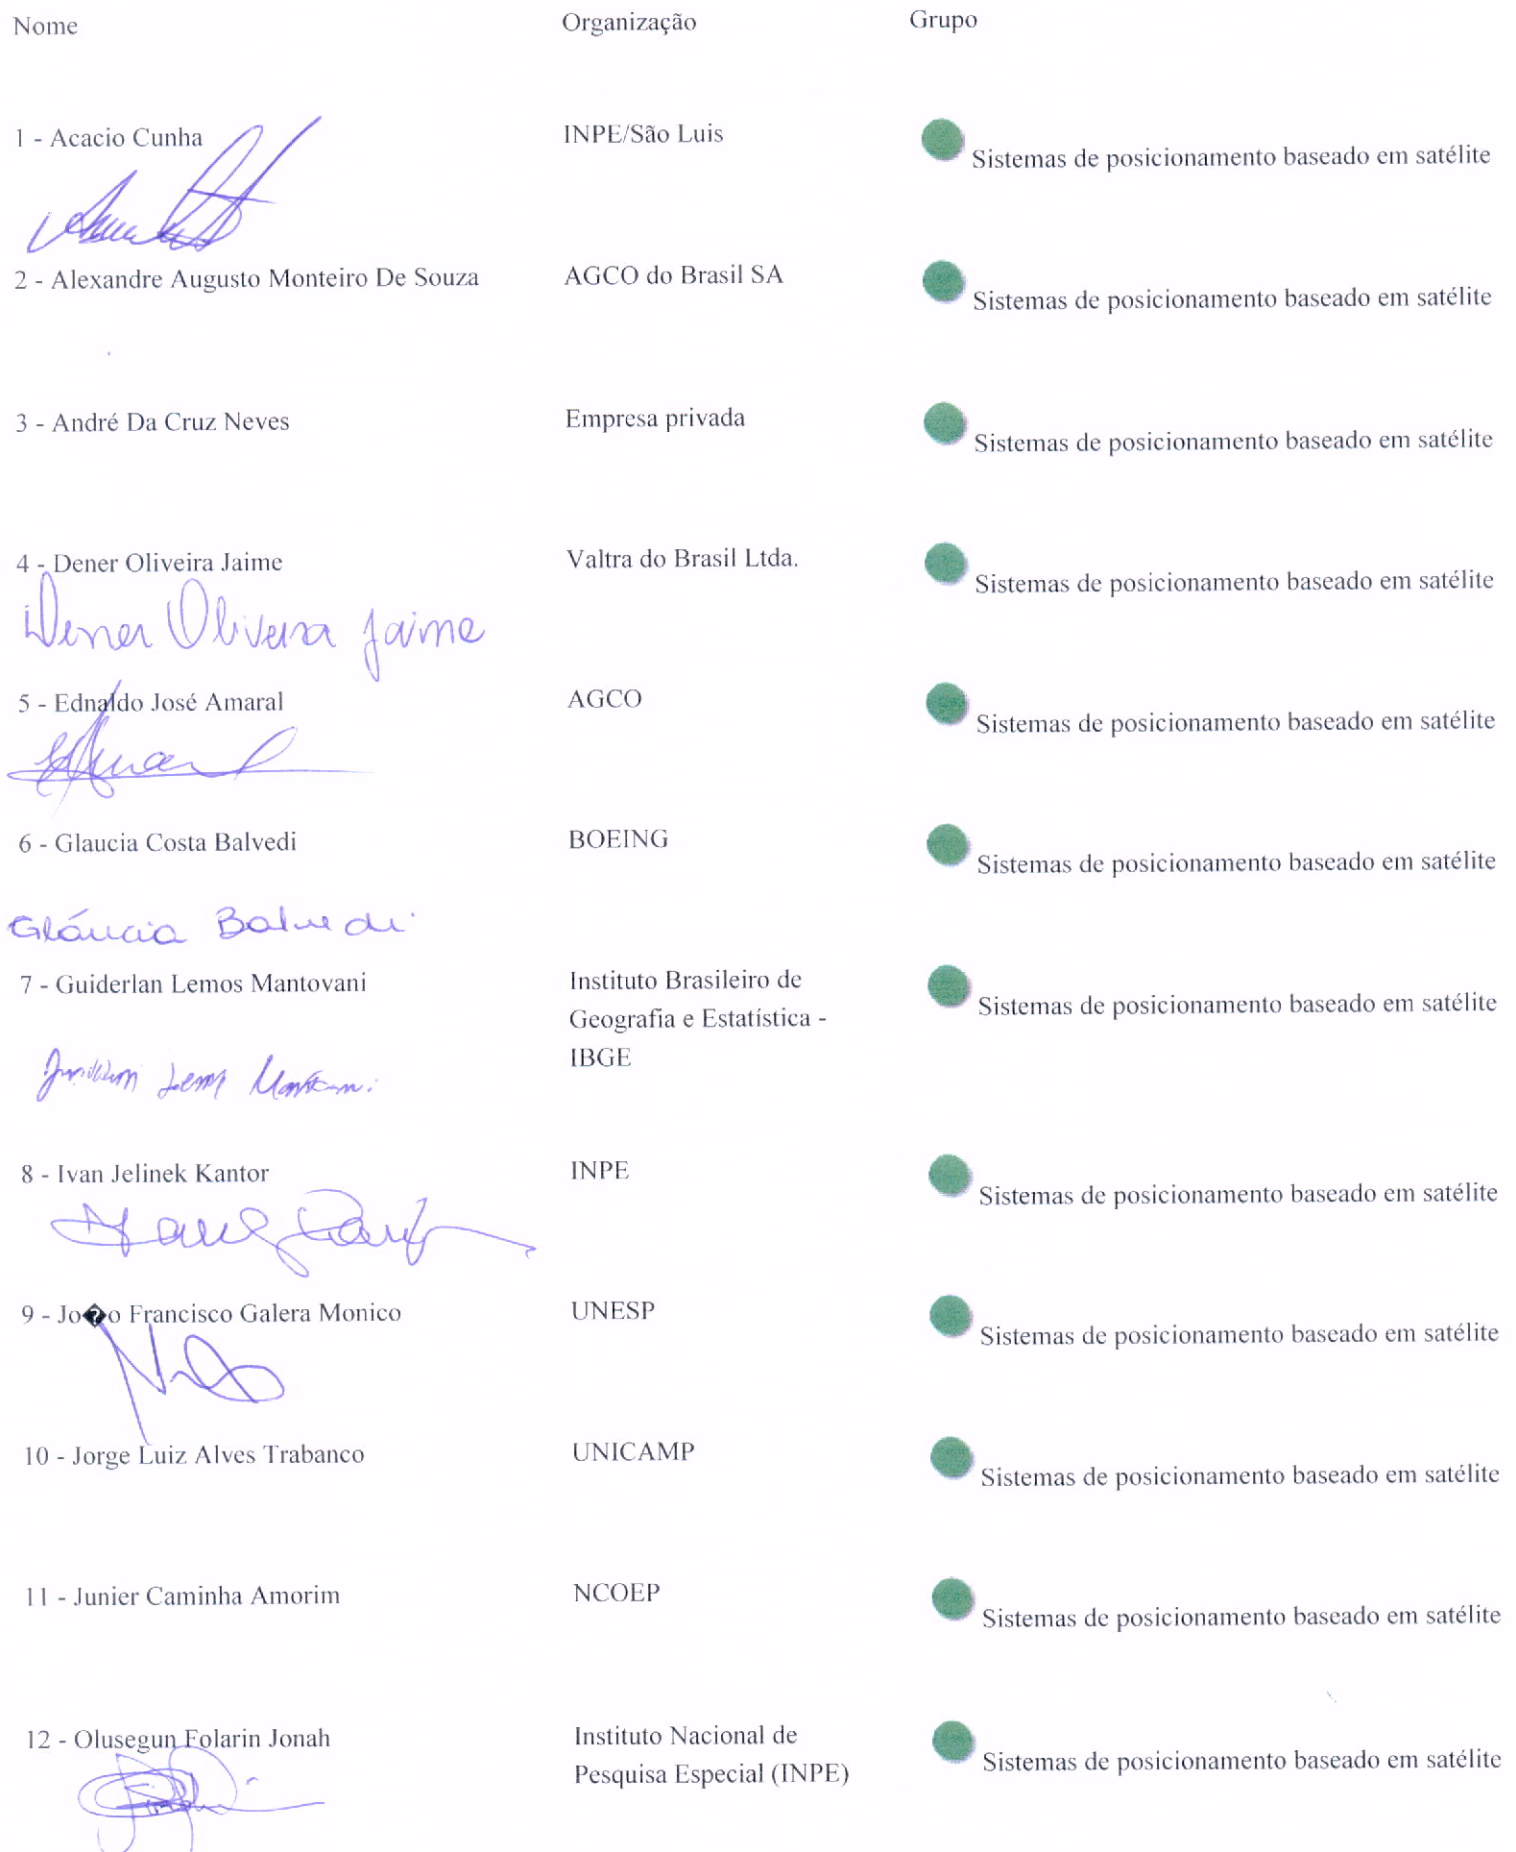 Nome Organização Grupo
1 - Acacio Cunha INPE/São Luis Sistemas de posicionamento baseado em satélite
2 - Alexandre Augusto Monteiro De Souza AGCO do Brasil SA Sistemas de posicionamento baseado em satélite
3 - André Da Cruz Neves Empresa privada Sistemas de posicionamento baseado em satélite
4 - Dener Oliveira Jaime Valtra do Brasil Ltda. Sistemas de posicionamento baseado em satélite
Dener Oliveira Jaime
5 - Ednaldo José Amaral AGCO Sistemas de posicionamento baseado em satélite
6 - Glaucia Costa Balvedi BOEING Sistemas de posicionamento baseado em satélite
Gláucia Balvedi
7 - Guiderlan Lemos Mantovani Instituto Brasileiro de Sistemas de posicionamento baseado em satélite
Geografia e Estatística -
IBGE
8 - Ivan Jelinek Kantor INPE Sistemas de posicionamento baseado em satélite
9 - Jo�o Francisco Galera Monico UNESP Sistemas de posicionamento baseado em satélite
10 - Jorge Luiz Alves Trabanco UNICAMP Sistemas de posicionamento baseado em satélite
11 - Junier Caminha Amorim NCOEP Sistemas de posicionamento baseado em satélite
12 - Olusegun Folarin Jonah Instituto Nacional de Sistemas de posicionamento baseado em satélite
Pesquisa Especial (INPE)